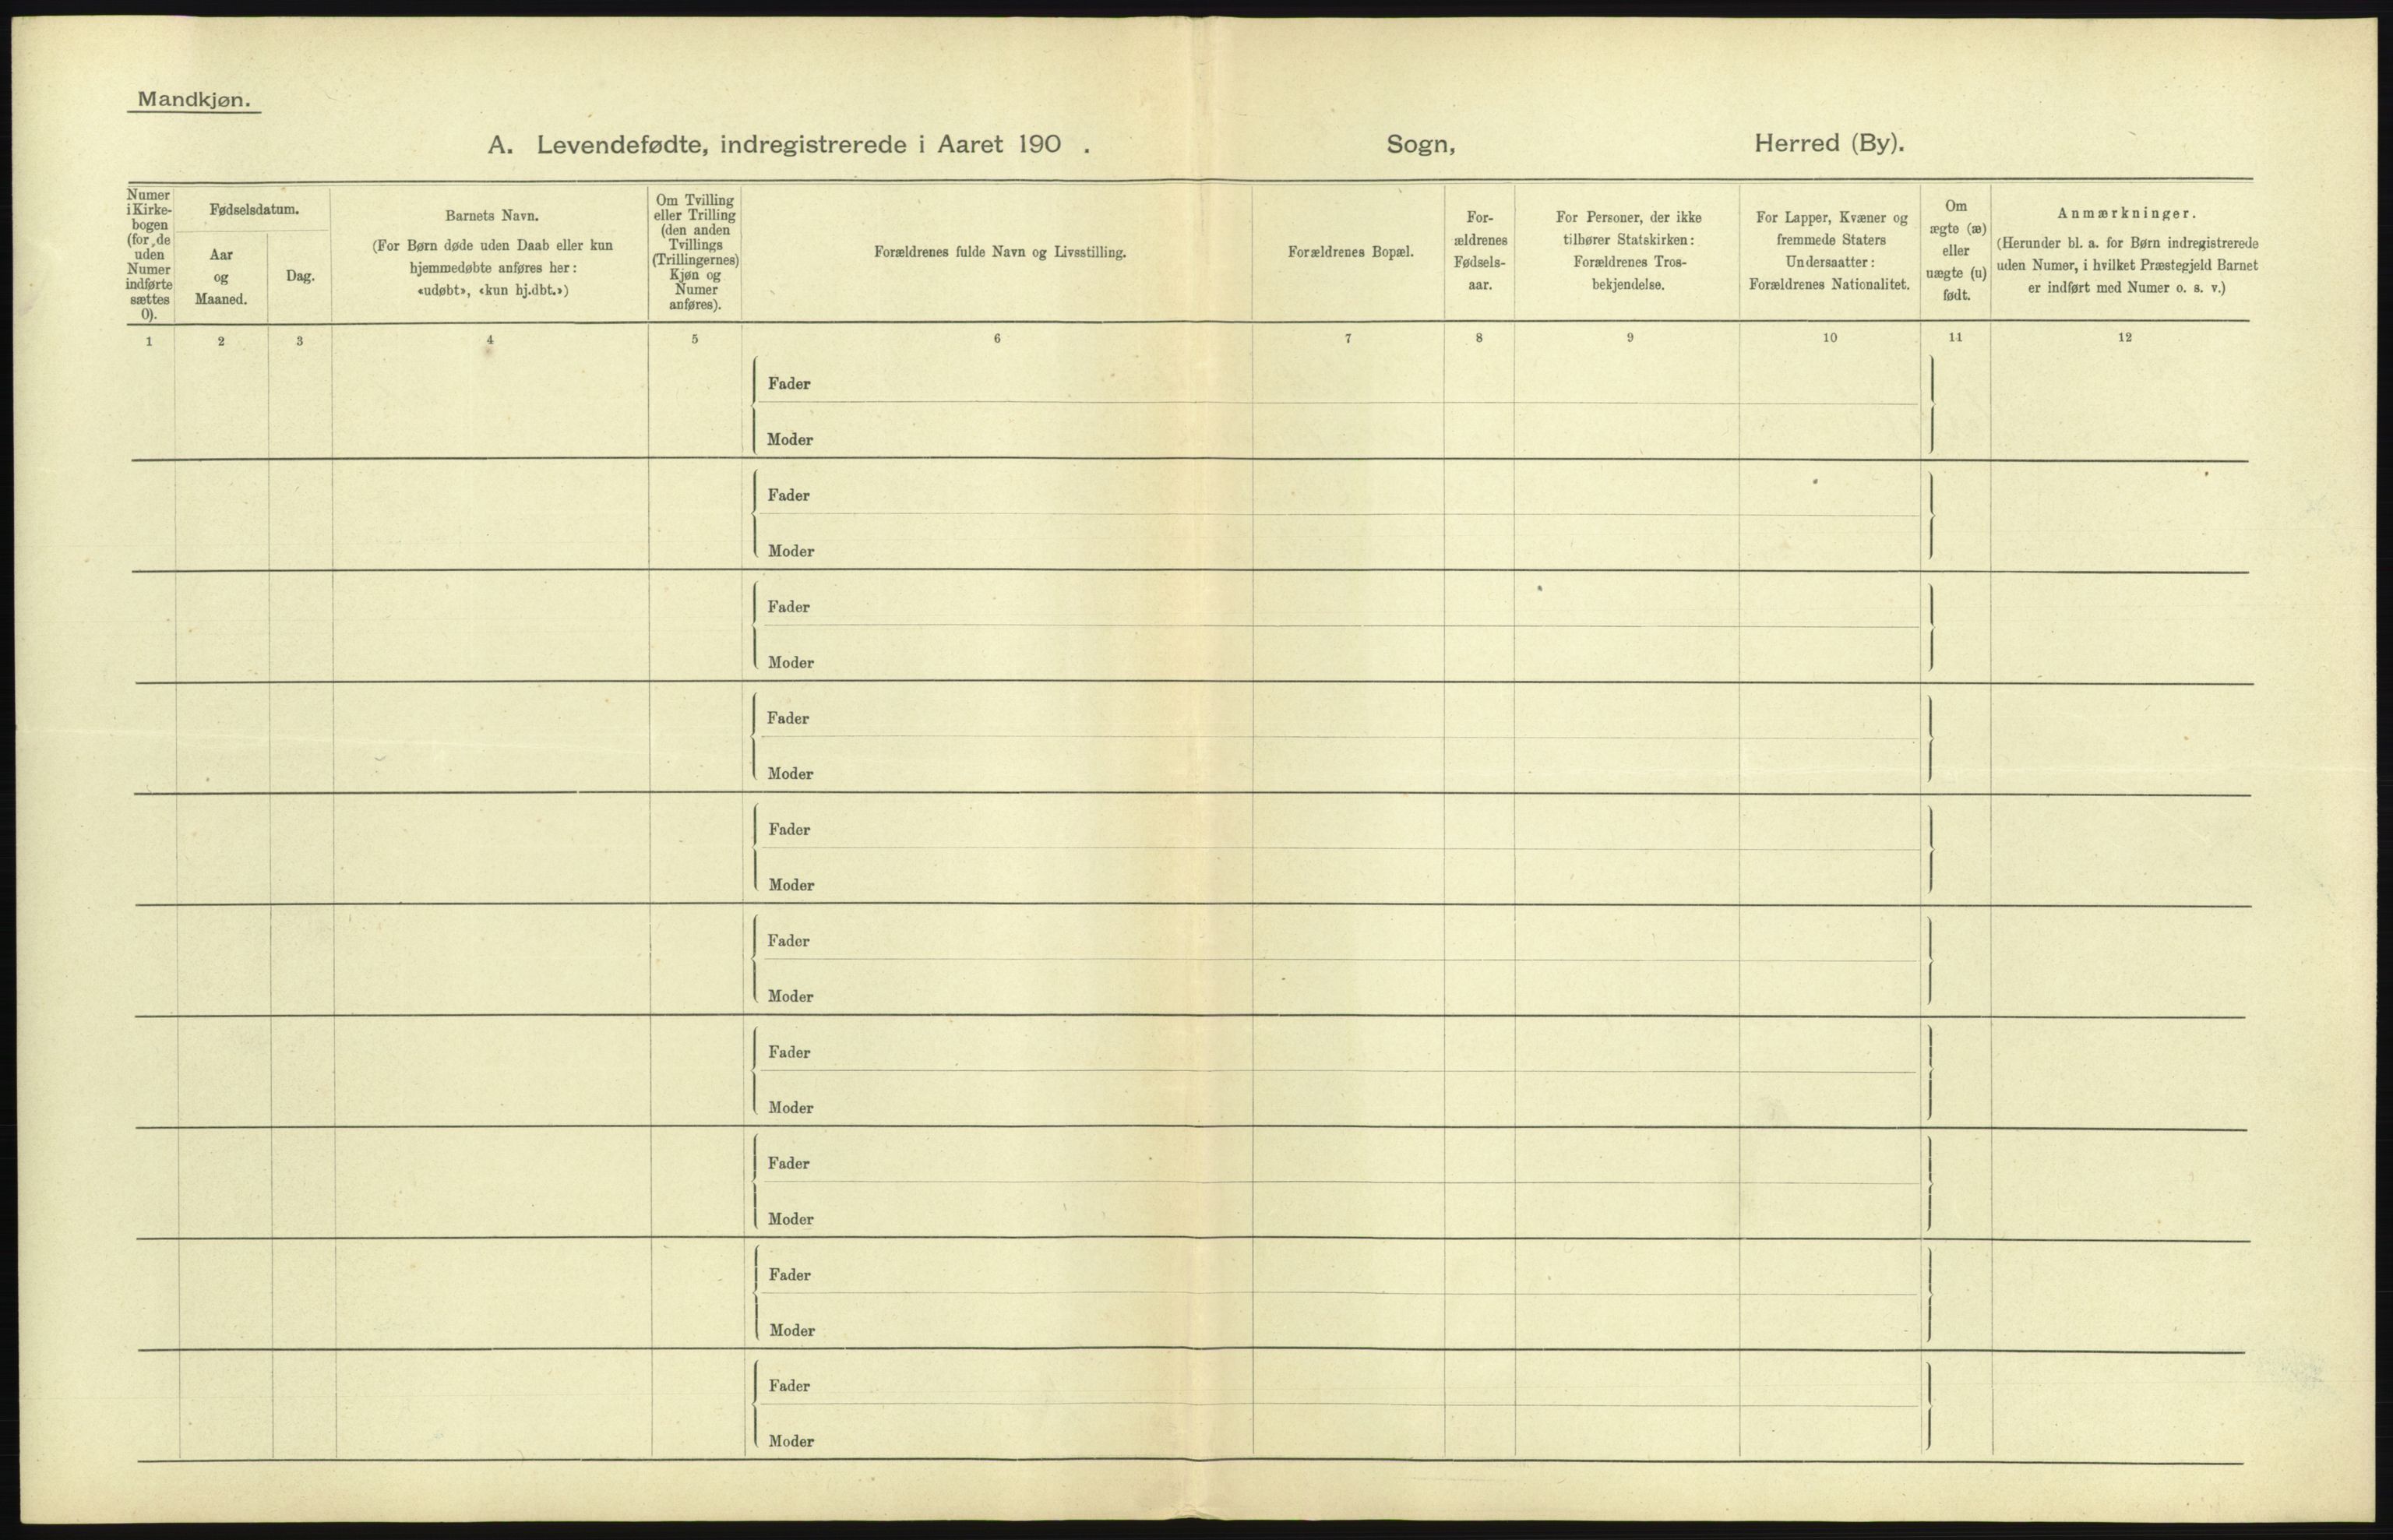 Mandkjøn.
A. Levendefødte, indregistrerede i Aaret 190 . Sogn, Herred (By).
Numer
i Kirke-
bogen
(for de
uden
Numer
indførte
sættes
0).
Fødselsdatum.
Aar
og
Maaned.
Dag.
Barnets Navn.
(For Børn døde uden Daab eller kun
hjemmedøbte anføres her:
«udøbt», «kun hj.dbt.»)
Om Tvilling
eller Trilling
(den anden
Tvillings
(Trillingernes)
Kjøn og
Numer
anføres).
Forældrenes fulde Navn og Livsstilling.
Forældrenes Bopæl.
For-
ældrenes
Fødsels-
aar.
For Personer, der ikke
tilhører Statskirken:
Forældrenes Tros-
bekjendelse.
For Lapper, Kvæner og
fremmede Staters
Undersaatter:
Forældrenes Nationalitet.
Om
ægte (æ)
eller
uægte (u)
født.
Anmærkninger.
(Herunder bl. a. for Børn indregistrerede
uden Numer, i hvilket Præstegjeld Barnet
er indført med Numer o. s. v.)
1 2 3 4 5 6 7 8 9 10 11 12
Fader
Moder
Fader
Moder
Fader
Moder
Fader
Moder
Fader
Moder
Fader
Moder
Fader
Moder
Fader
Moder
Fader
Moder
Fader
Moder